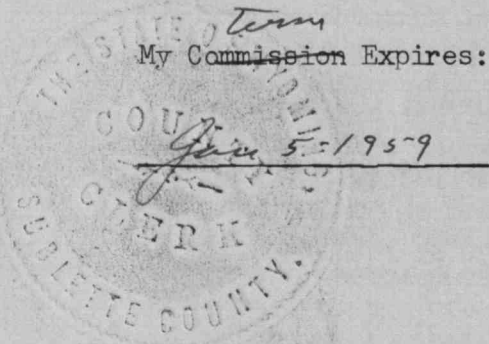 term
My Commission Expires:
Jan 5-1959
THE STATE OF WYOMING
COUNTY
CLERK
SUBLETTE COUNTY.